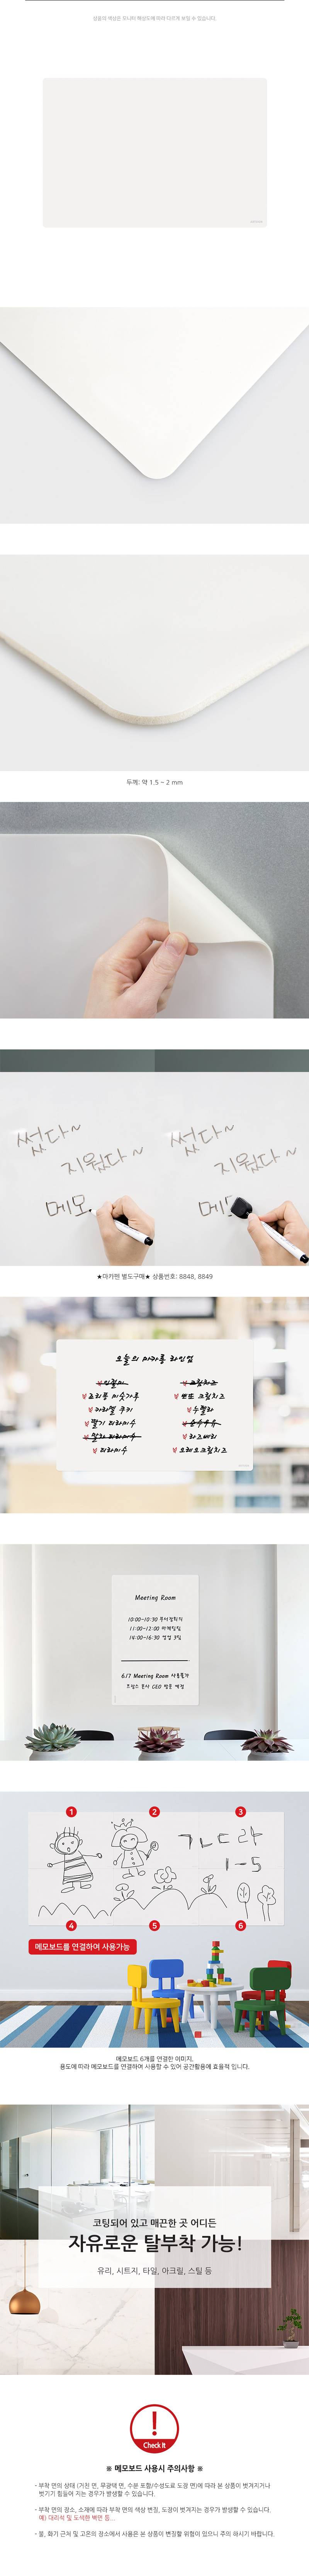 상품의 색상은 모니터 해상도에 따라 다르게 보일 수 있습니다.
두께: 약 1.5 ~ 2 mm
썼다~
지웠다~
메모
썼다~
지웠다~
★마카펜 별도구매★ 상품번호: 8848, 8849
오늘의 마카롱 라인업
인절미
크림치즈
크리몽 씨솟가루
쌘쪼 크림치즈
카라멜 쿠키
누텔라
딸기 티라미수
라즈베리
티라미수
오레오크림치즈
Meeting Room
10:00~10:30 투자전략회의
11:00~12:00 마케팅팀
14:00~16:30 영업 3팀
6/7 Meeting Room 사용불가
1
2
3
ㄱㄴㄷ라
1-5
4
5
6
메모보드를 연결하여 사용가능
메모보드 6개를 연결한 이미지.
용도에 따라 메모보드를 연결하여 사용할 수 있어 공간활용에 효율적 입니다.
코팅되어 있고 매끈한 곳 어디든
자유로운 탈부착 가능!
유리, 시트지, 타일, 아크릴, 스틸 등
Check It
※ 메모보드 사용시 주의사항 ※
- 부착 면의 상태 (거친 면, 무광택 면, 수분 포함/수성도료 도장 면)에 따라 본 상품이 벗겨지거나
벗기기 힘들어 지는 경우가 발생할 수 있습니다.
- 부착 면의 장소, 소재에 따라 부착 면의 색상 변질, 도장이 벗겨지는 경우가 발생할 수 있습니다.
예) 대리석 및 도색한 벽면 등...
- 불, 화기 근처 및 고온의 장소에서 사용은 본 상품이 변질할 위험이 있으니 주의 하시기 바랍니다.